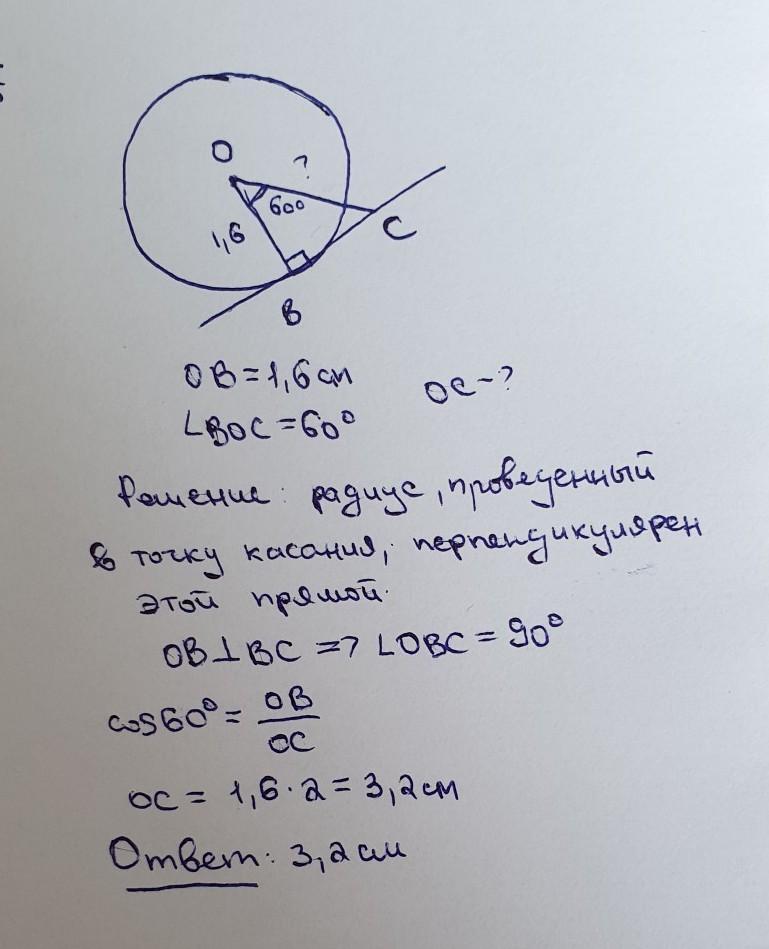 O
?
60°
1,6
C
B
OB = 1,6 см
OC - ?
∠BOC = 60°
Решение: радиус, проведенный
в точку касания, перпендикулярен
этой прямой.
OB⊥BC => ∠OBC = 90°
cos60° = OB/OC
OC = 1,6 · 2 = 3,2 см
Ответ: 3,2 см